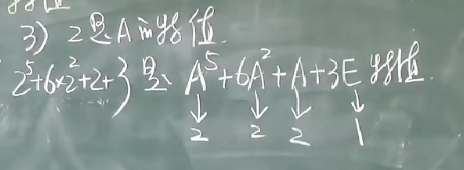 3) 2是A的特值.
2⁵+6×2²+2+3是 A⁵+6A²+A+3E特值.
↓ ↓ ↓ ↓
2 2 2 1